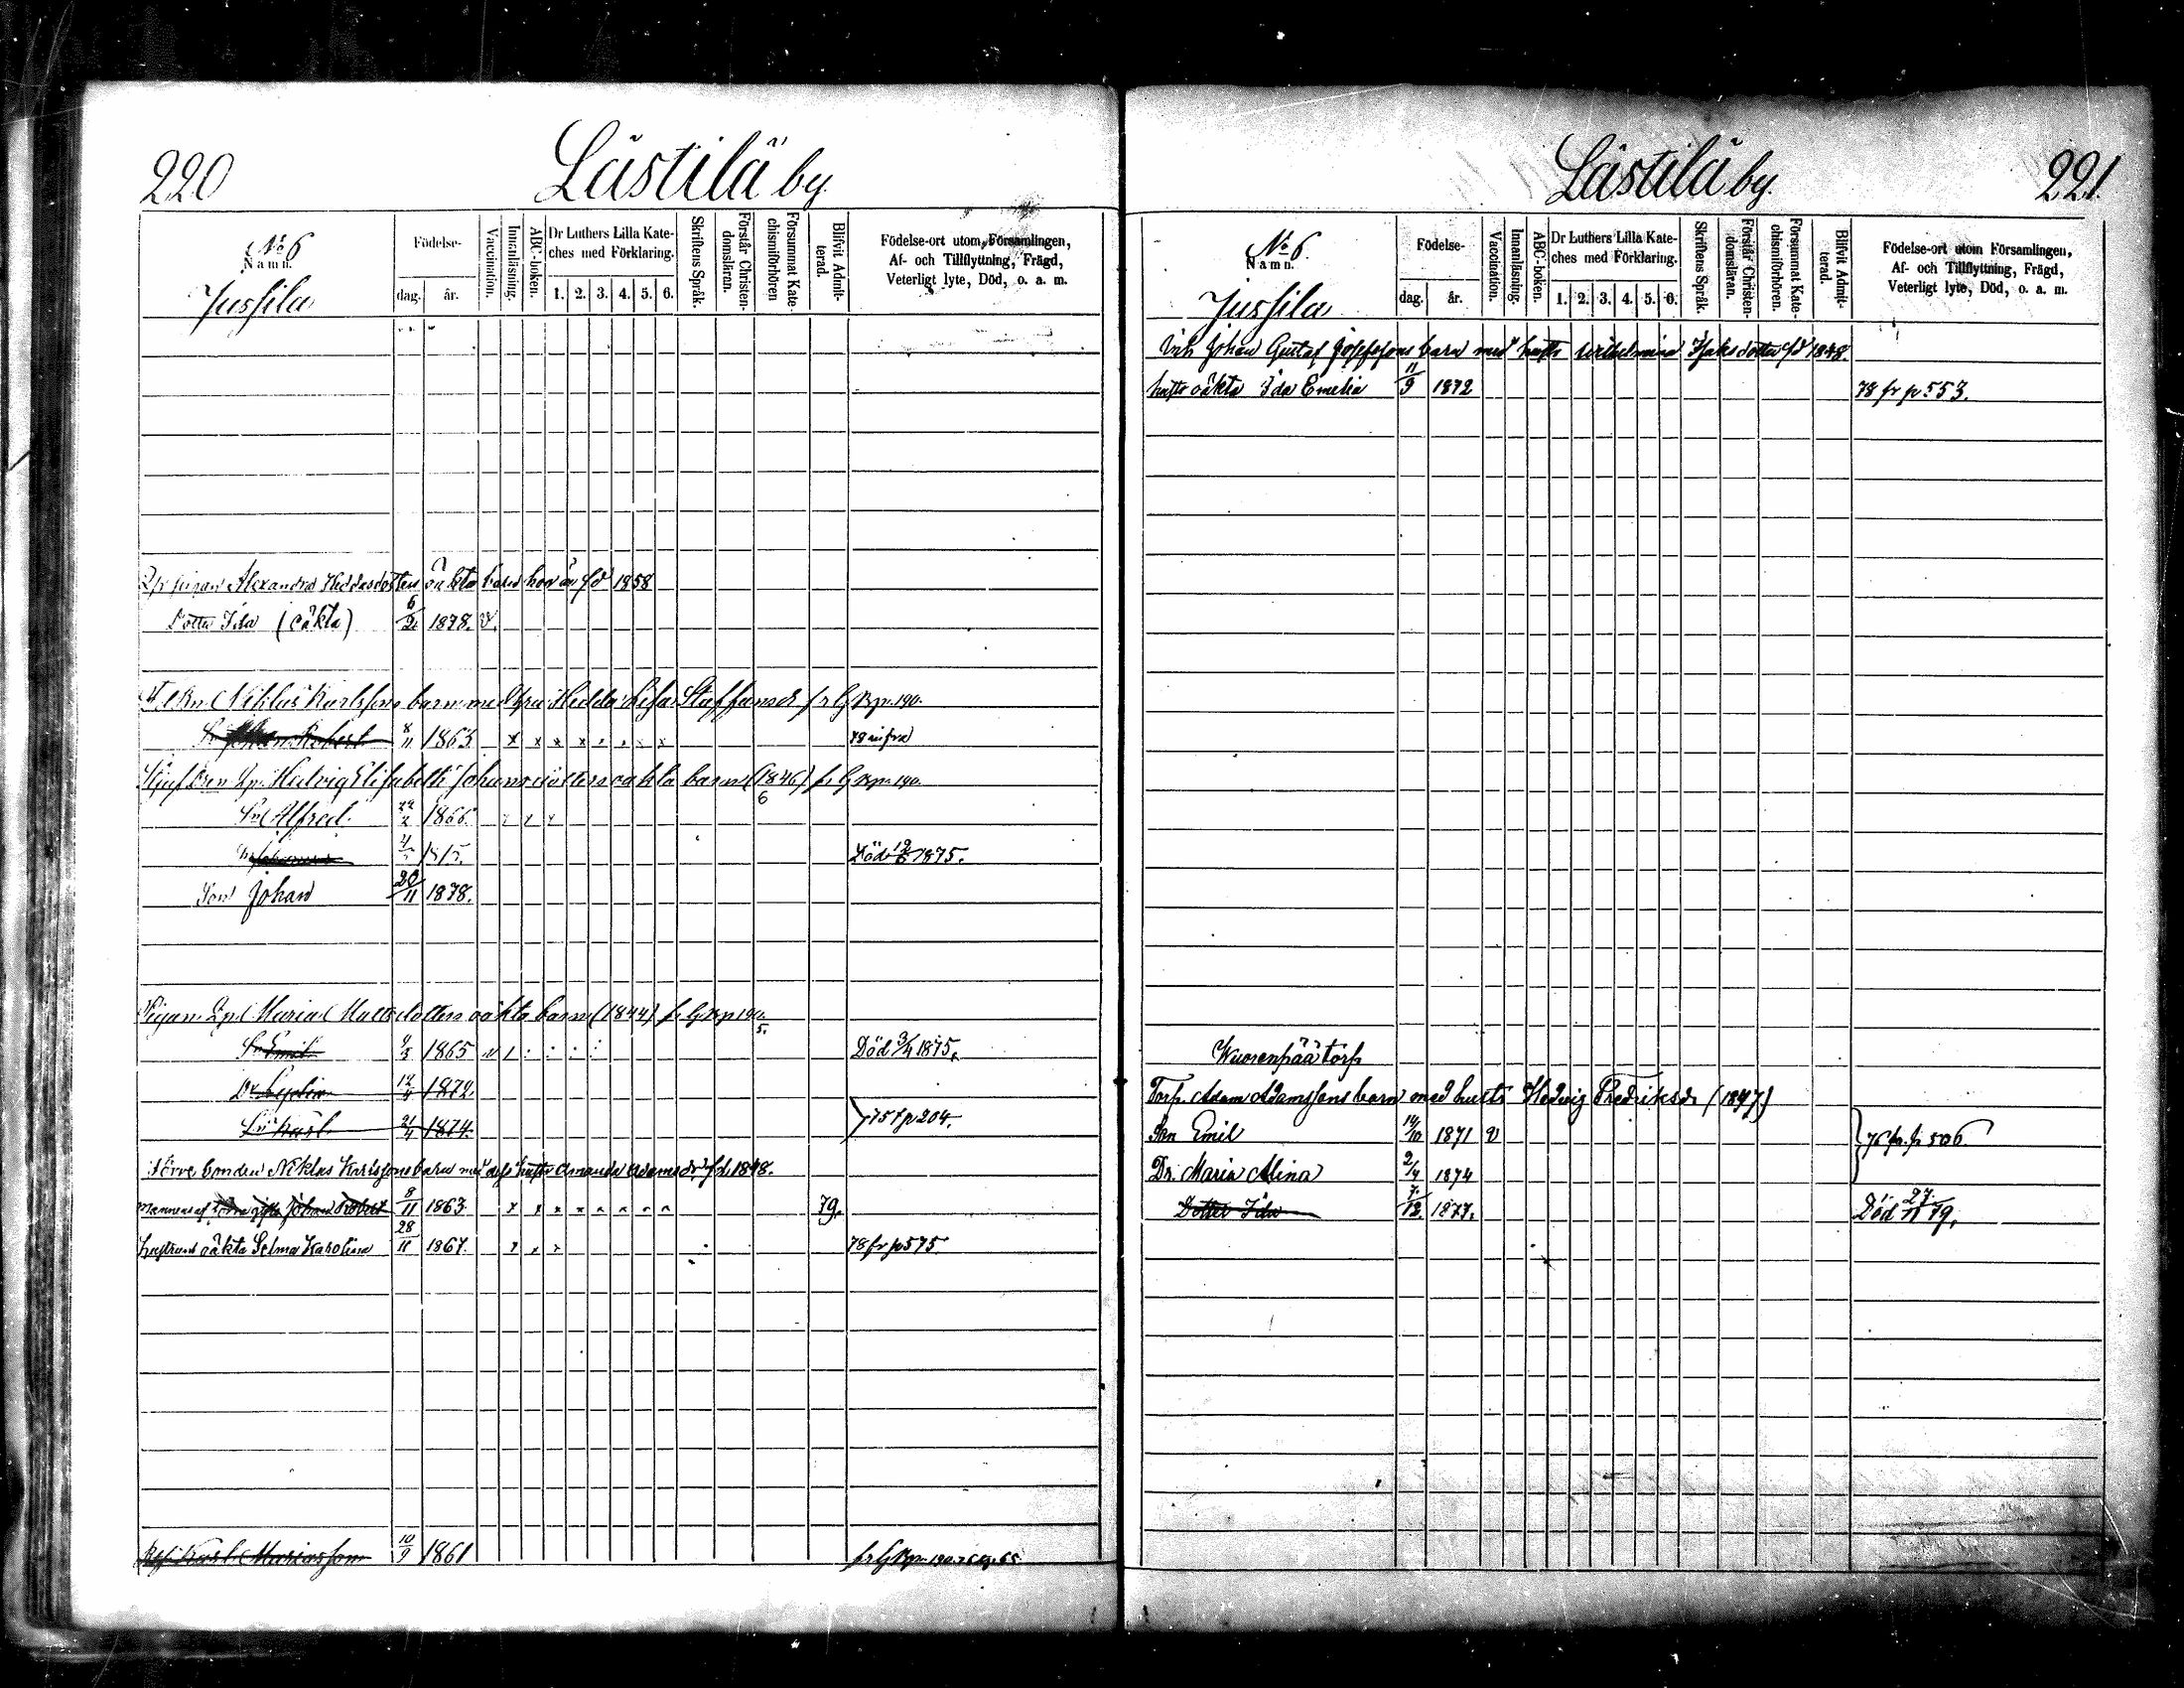 220
Lästilä by.
No 6
Namn.
Jussila
Födelse-
dag. år.
Vaccination.
Innanläsning.
ABC-boken.
Dr Luthers Lilla Kate-
ches med Förklaring.
1. 2. 3. 4. 5. 6.
Skriftens Språk.
Förstår Christen-
domsläran.
Försummat Kate-
chismiförhören
Blifvit Admit-
terad.
Födelse-ort utom Församlingen,
Af- och Tillflyttning, Frägd,
Veterligt lyte, Död, o. a. m.
Alexandra Heddasdotters oäkta barn hon är fd 1858
Dotter Ida (oäkta) 6/2 1878. v.
Niklas Karlssons barn med Hedda Lisa Staffansdr fr G Bp. 190.
Johan Robert 8/11 1863 x x x x x x x x 78 infra
Hedvig Elisabeth Johansdotters oäkta barn (1846) fr G Bp. 190.
6
Sn Alfred 22/2 1866
Död 12/6 1875.
Son Johan 20/11 1878.
Pigan Maria Mattsdotters oäkta barn (1844) fr G Bp 190.
5.
Sn Emil 1865 Död 3/4 1875.
12/4 1872.
Sn Karl 21/4 1874. } 75 t p 204.
bonden Niklas Karlssons barn med dess hustr Amanda Adamsdr fd. 1848.
Mannens af Johan Robert 8/11 1863 x x x x x x x x 79.
hustruns oäkta Selma Karolina 28/11 1867. x x x 78 fr p 575
Karl Mariasson 10/9 1861
221.
Lästilä by.
No 6.
Namn.
Jussila
Födelse-
dag. år.
Vaccination.
Innanläsning.
ABC-boken.
Dr Luthers Lilla Kate-
ches med Förklaring.
1. 2. 3. 4. 5. 6.
Skriftens Språk.
Förstår Christen-
domsläran.
Försummat Kate-
chismiförhören.
Blifvit Admit-
terad.
Födelse-ort utom Församlingen,
Af- och Tillflyttning, Frägd,
Veterligt lyte, Död, o. a. m.
Johan Gustaf Josefssons barn med hustr Wilhelmina Isaksdotter fd 1848.
hustr oäkta Ida Emelia 11/9 1872 78 fr p. 553.
Wuorenpää torp
Torp. Adam Adamssons barn med hustr Hedvig Fredriksdr (1847)
Son Emil 14/10 1871 v } 76 fr. p 506
Dr. Maria Alina 2/4 1874
Dotter Ida 7/12. 1877. Död 27/11 79.